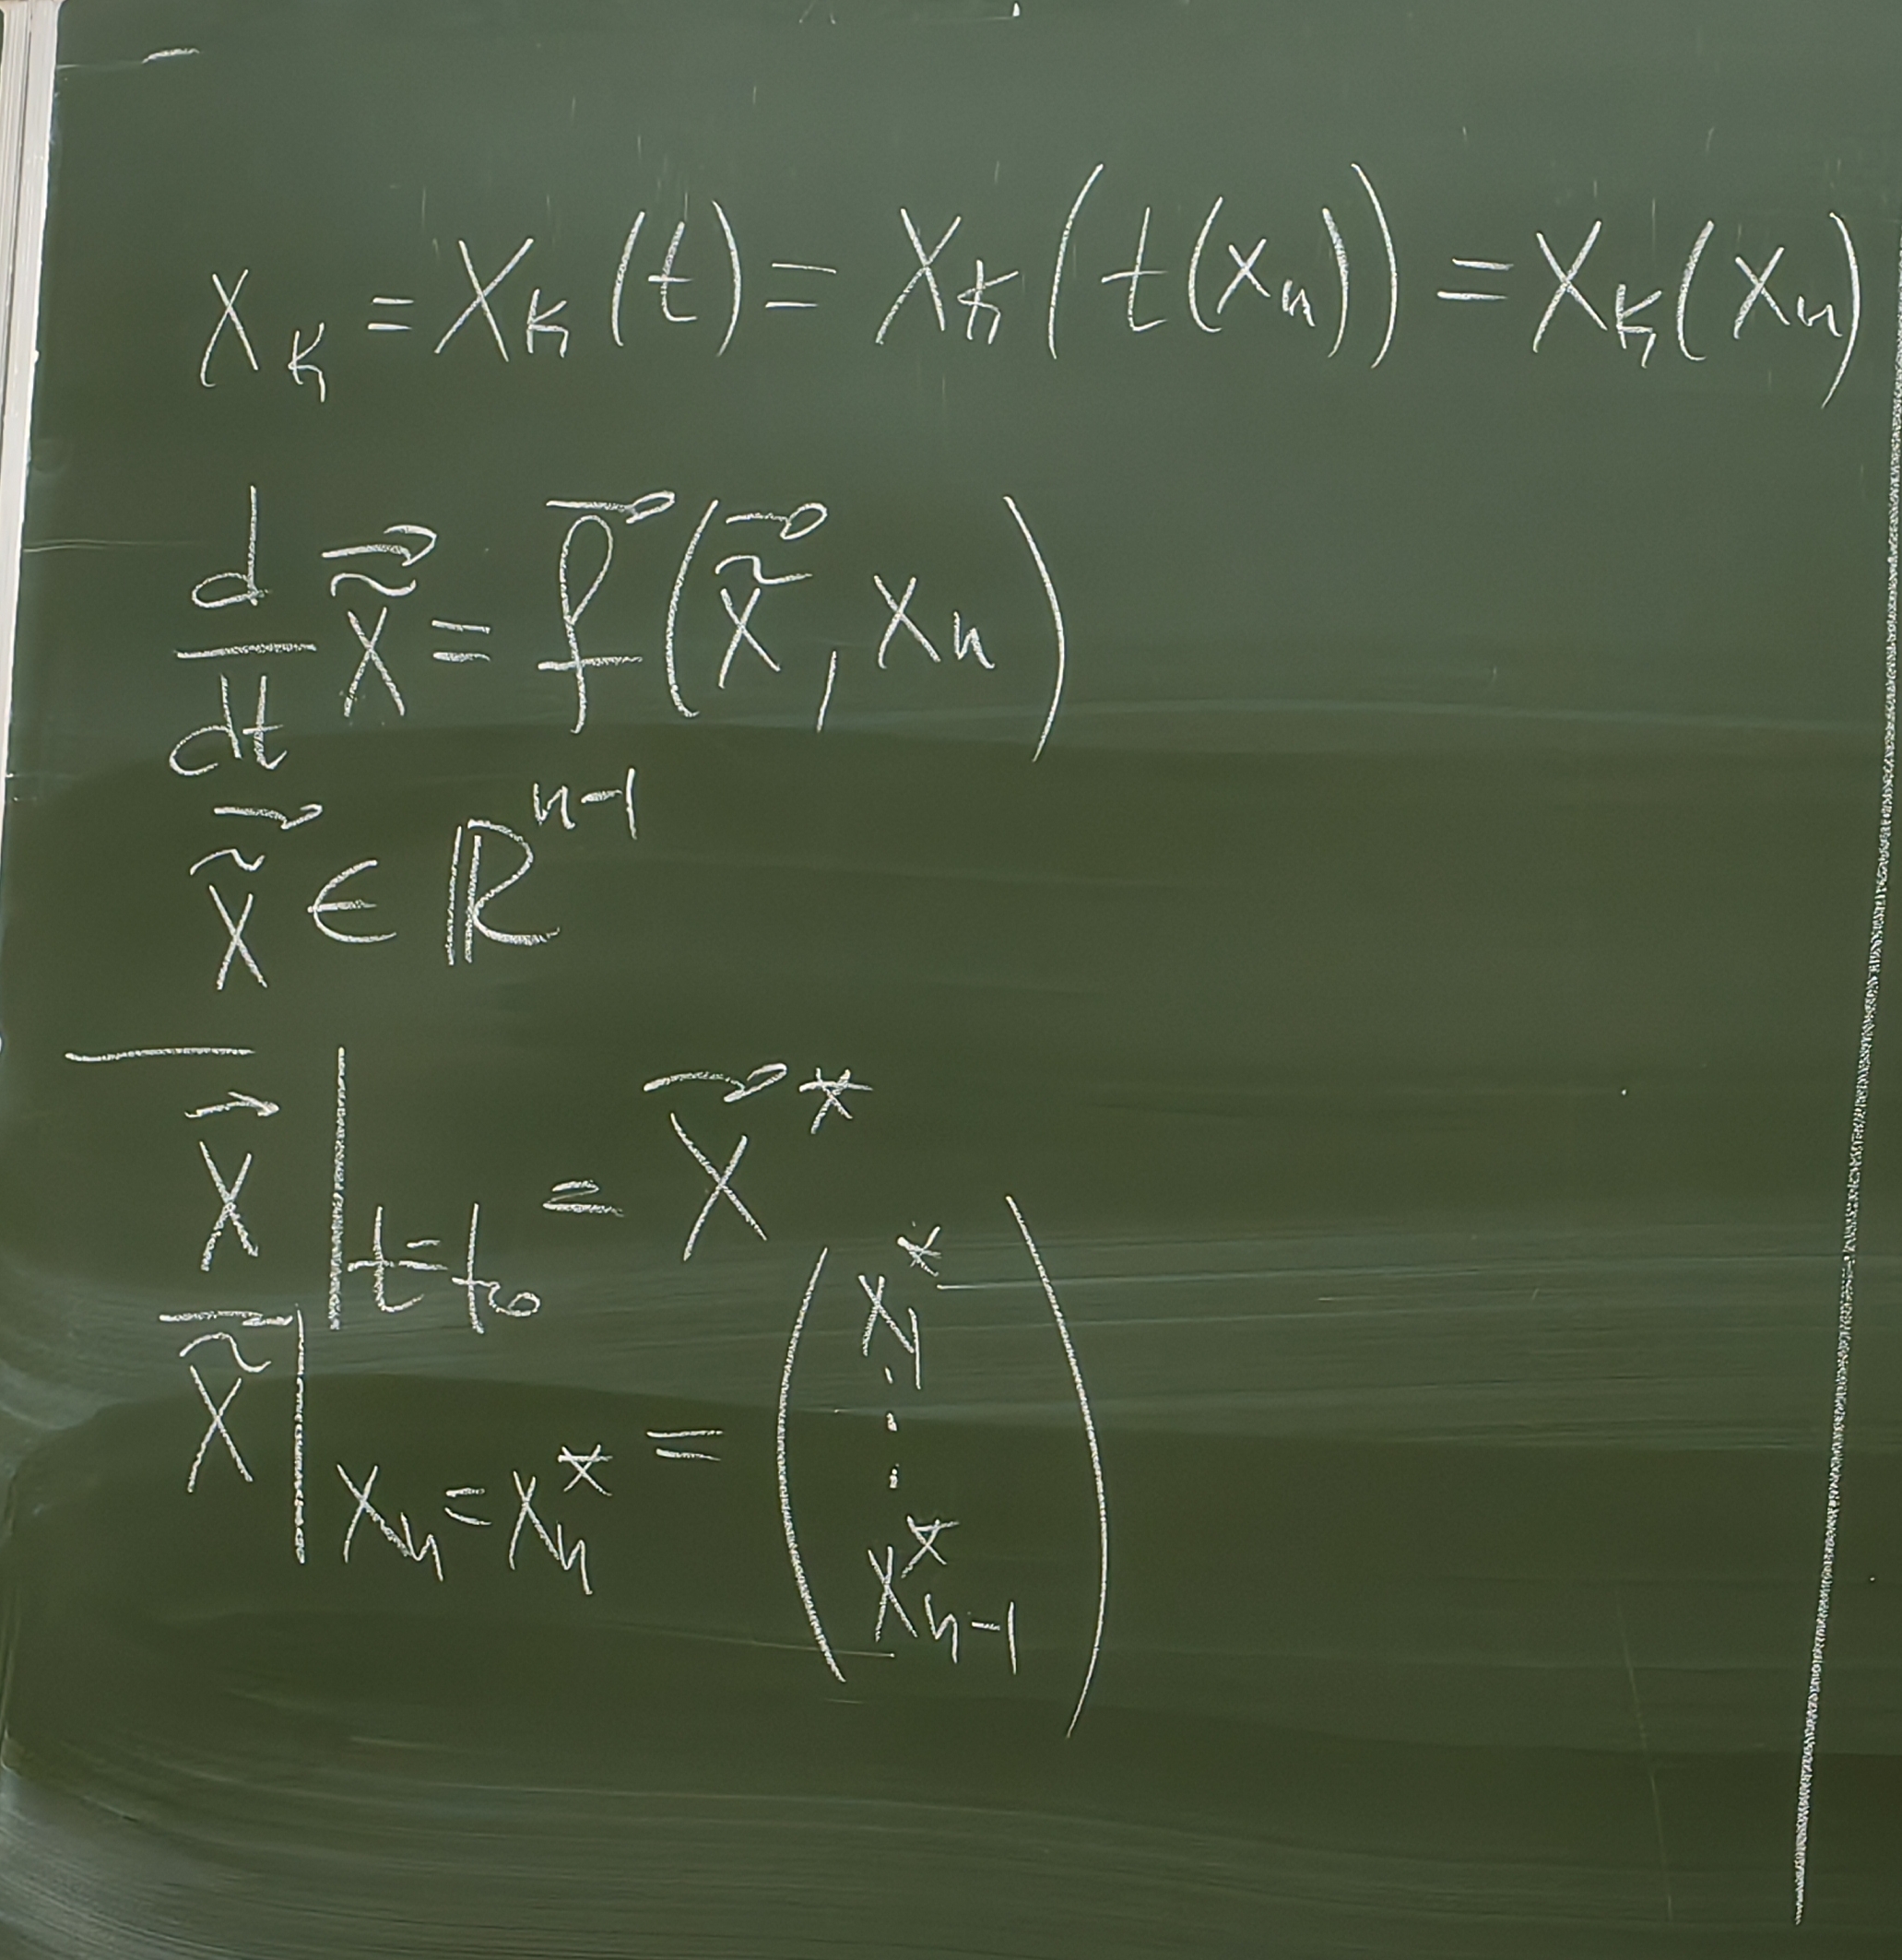 x_k = x_k(t) = x_k(t(x_n)) = x_k(x_n)
\frac{d}{dt} \vec{\tilde{x}} = \vec{f}(\vec{\tilde{x}}, x_n)
\vec{\tilde{x}} ∈ ℝ^{n-1}
\vec{x}|_{t=t_0} = \vec{x}^*
\vec{\tilde{x}}|_{x_n=x_n^*} = \begin{pmatrix} x_1^* \\ \vdots \\ x_{n-1}^* \end{pmatrix}